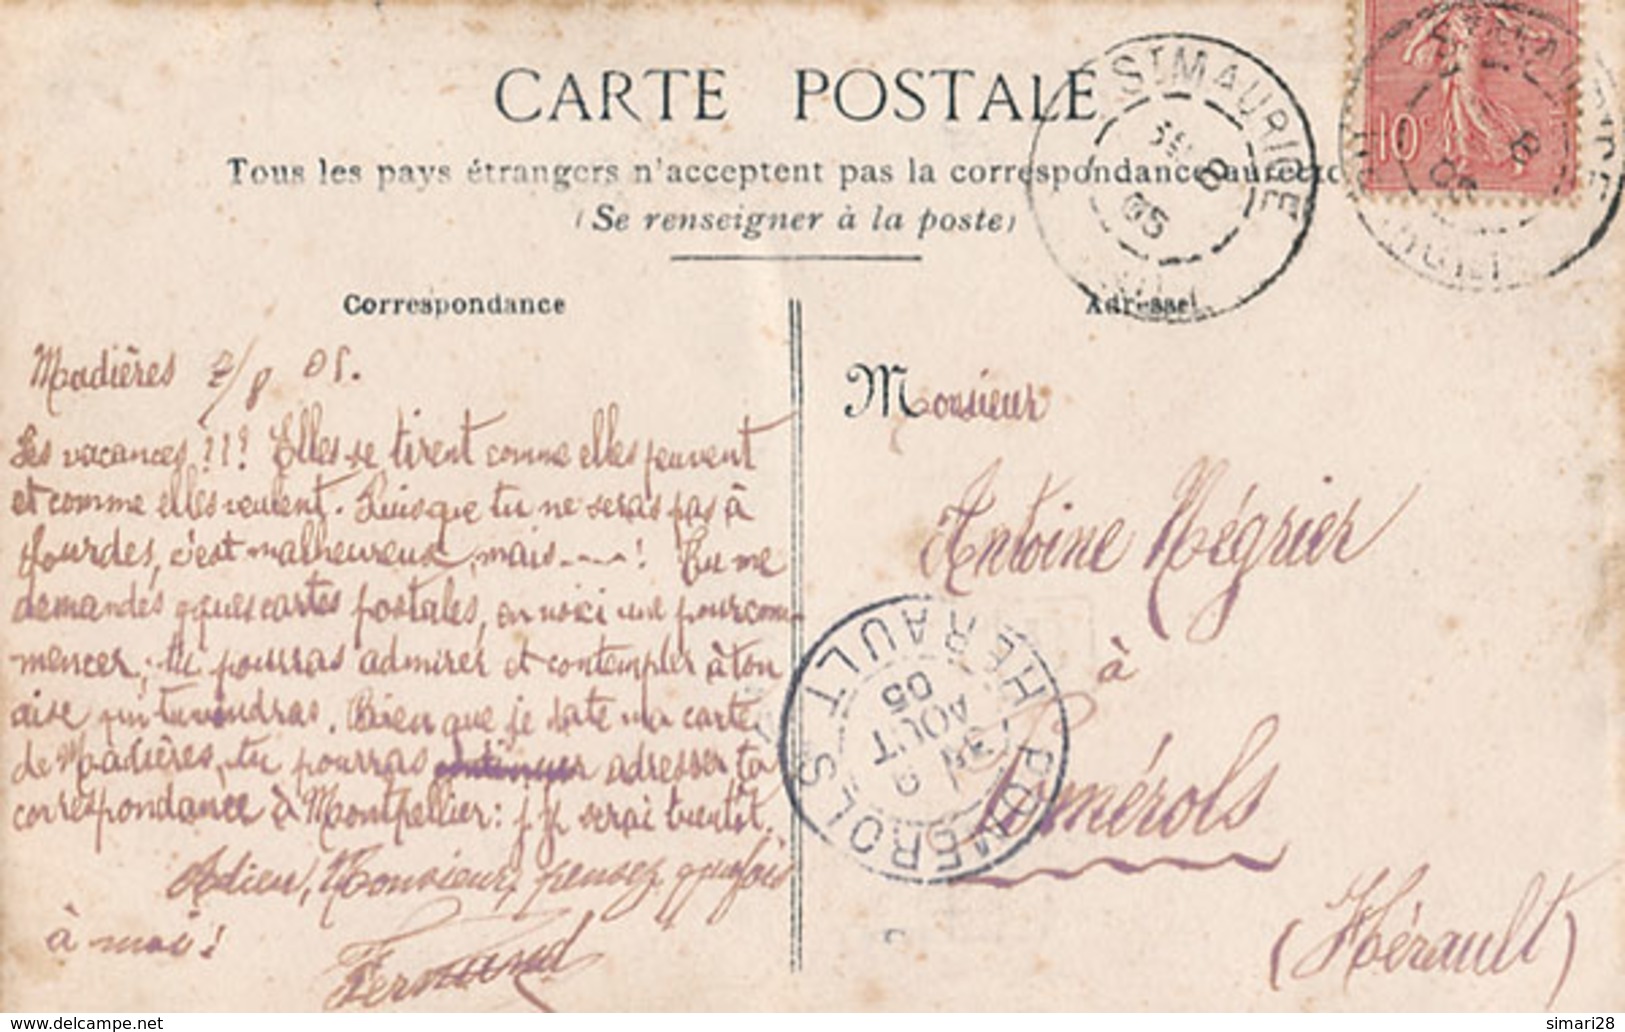 CARTE POSTALE
Tous les pays étrangers n'acceptent pas la correspondance au recto
(Se renseigner à la poste)
ST MAURICE
8
05
10c
Correspondance
Adresse
Madières 7/8 05.
Les vacances ??? Elles se tirent comme elles peuvent
et comme elles veulent. Puisque tu ne seras pas à
Lourdes, c'est malheureux, mais ----! Tu me
demandes qques cartes postales, en voici une pour com-
mencer; tu pourras admirer et contempler à ton
aise qui tu viendras. Bien que je date ma carte
de Madières, tu pourras adresser ta
correspondance à Montpellier: j'y serai bientôt.
Adieu, Monsieur, pensez quqfois
à moi!
Fernand
Monsieur
Antoine Négrier
à
Pomérols
(Hérault)
POMEROLS
HERAULT
9
AOUT
05
www.delcampe.net
simari28